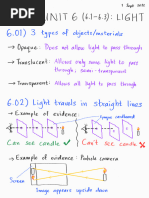 1 Sept 2025
UNIT 6 (6.1-6.3): LIGHT
6.01) 3 types of objects/materials
→ Opaque: Does not allow light to pass through
→ Translucent: Allows only some light to pass through; semi-transparent
→ Transparent: Allows all light to pass through
6.02) Light travels in straight lines
→ Example of evidence:
Can see candle ✓
Can't see candle ✗
→ Example of evidence: Pinhole camera
Screen
Image appears upside down